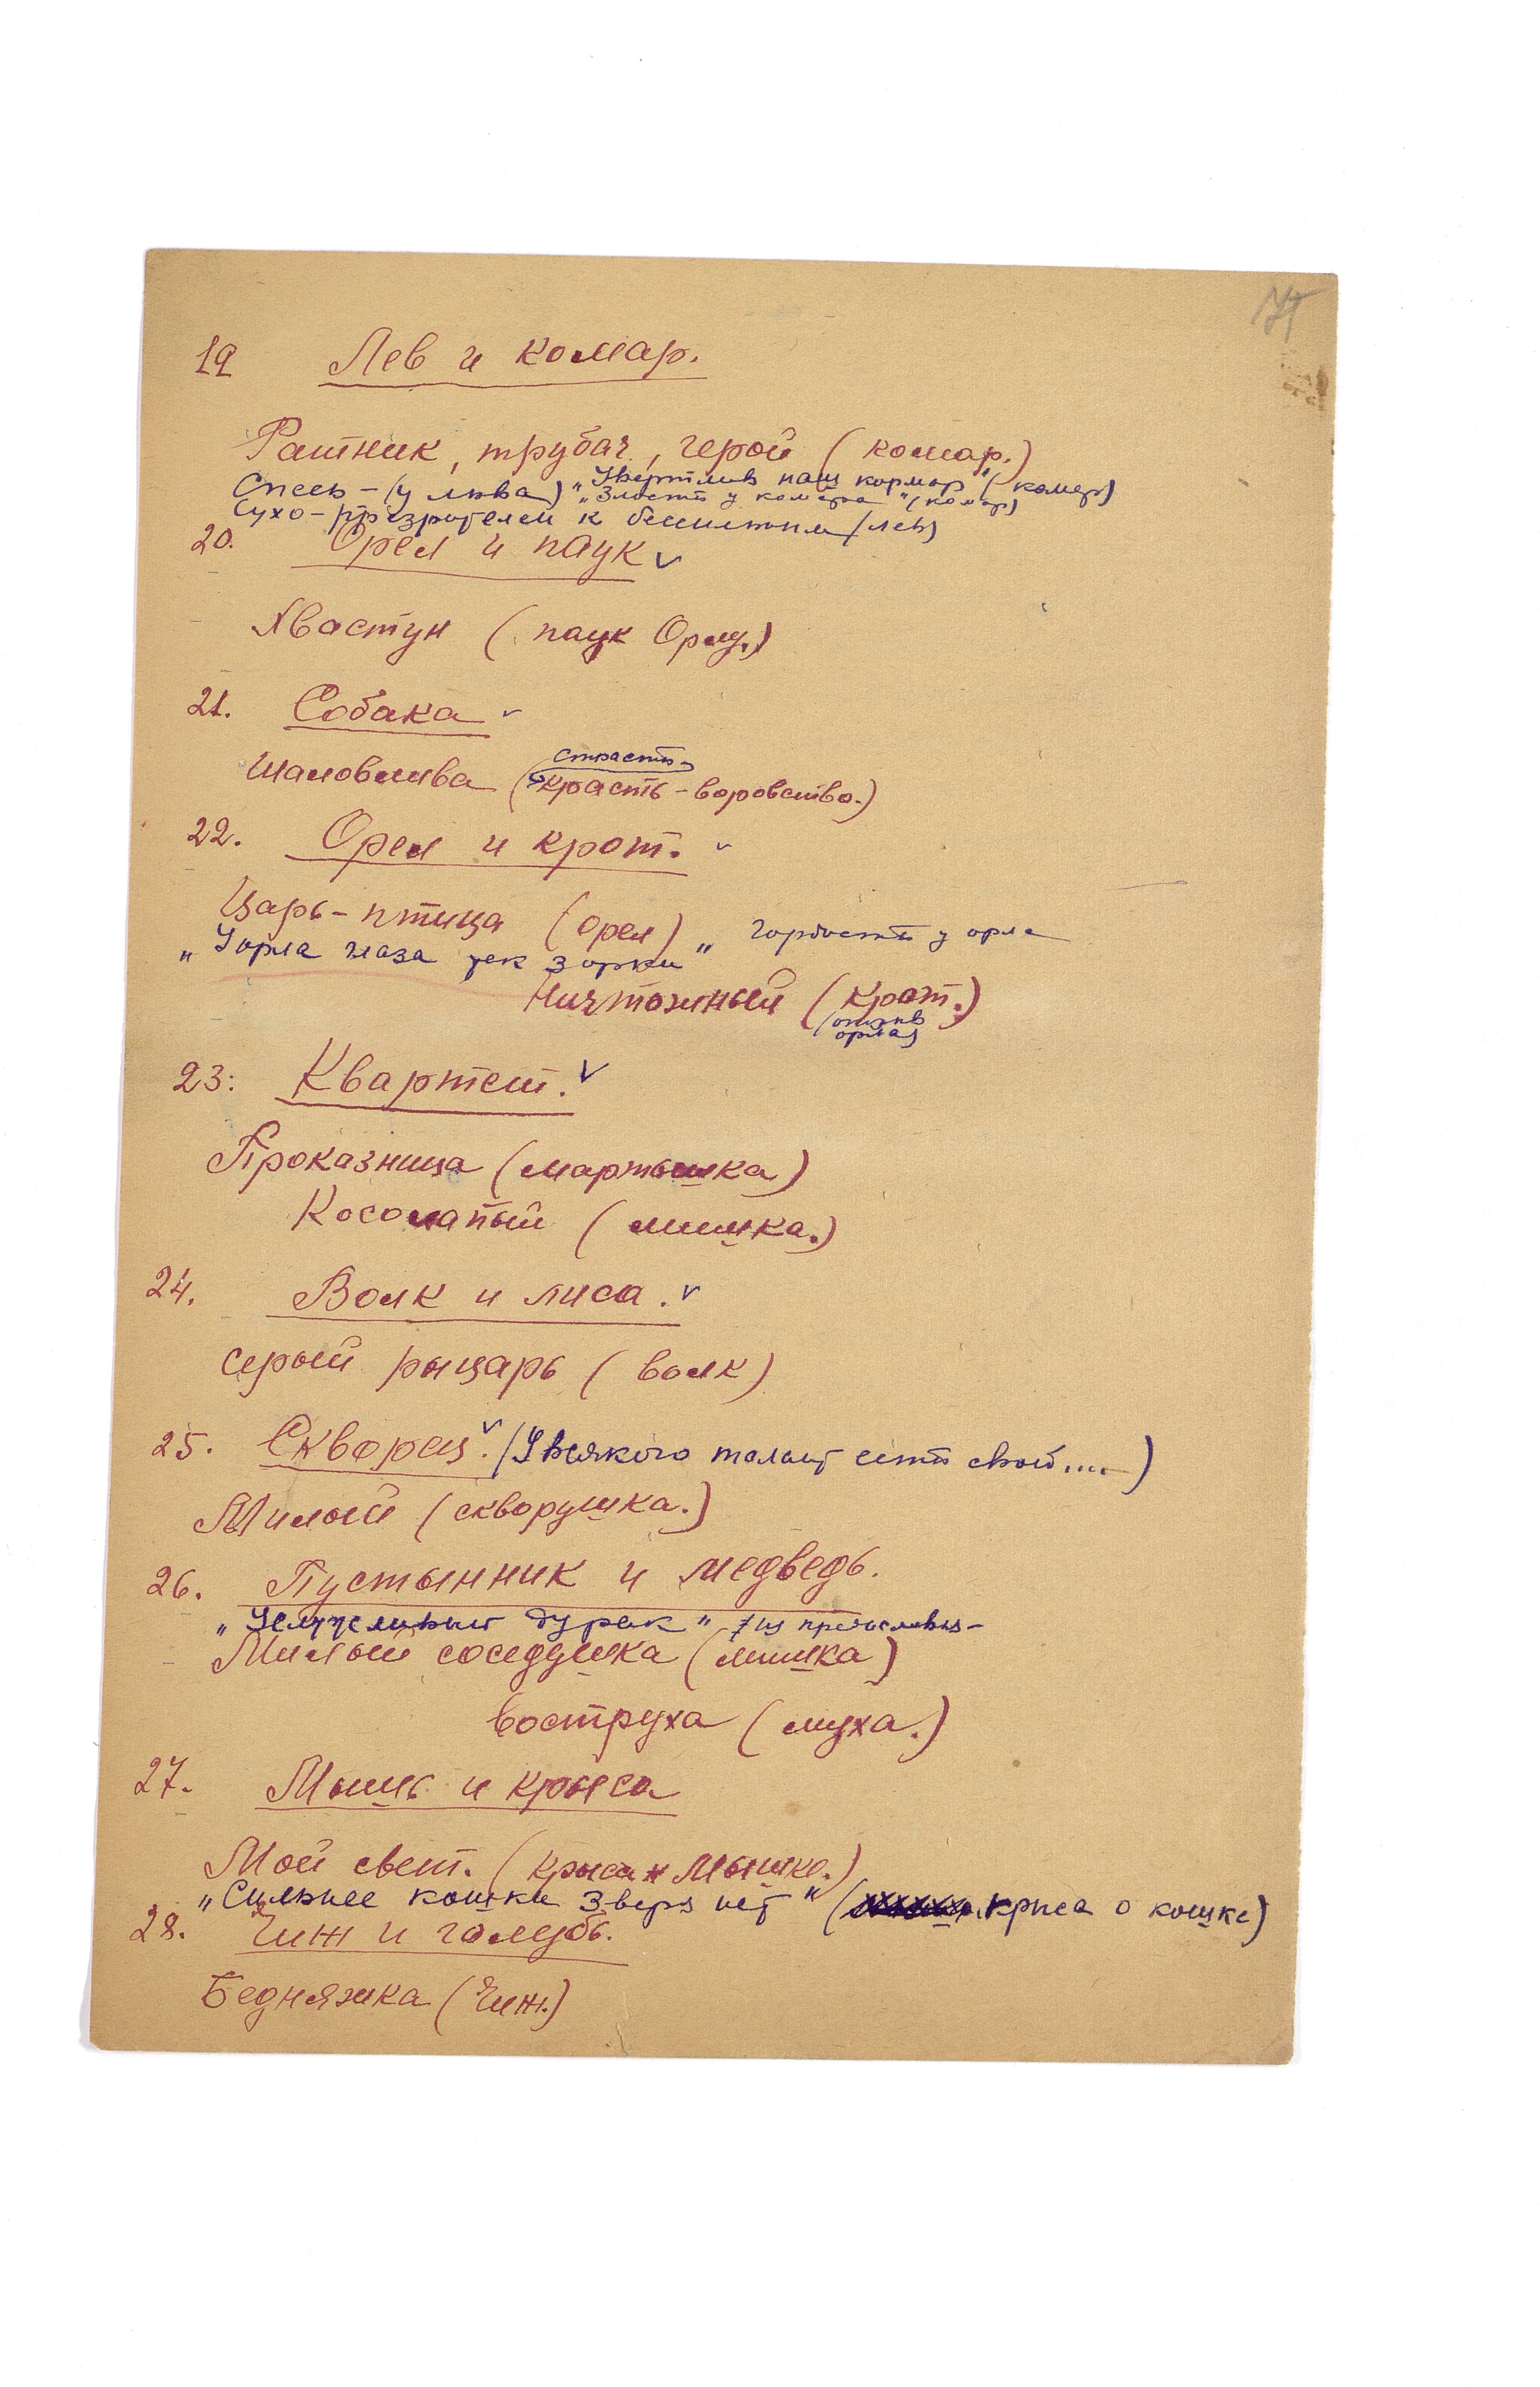 75
19 Лев и комар.
Ратник, трубач, герой (комар.)
Спесь - (у льва) „Увертлив наш комар" (комар)
„Злость у комара" (комар)
Сухо-презрителен к бессильным (лев)
20. Орел и паук ✓
Хвастун (паук Орлу.)
21. Собака ✓
страсть
Шаловлива (красть - воровство.)
22. Орел и крот. ✓
Царь-птица (орел) „ гордость у орла
„У орла глаза так зорки"
Ничтожный (крот.)
(отзыв
орла)
23: Квартет. ✓
Проказница (мартышка)
Косолапый (мишка.)
24. Волк и лиса. ✓
серый рыцарь (волк)
25. Скворец ✓. (У всякого талант есть свой....)
Милый (скворушка.)
26. Пустынник и медведь.
„Услужливый дурак"
Милый соседушка (мишка)
воструха (муха.)
27. Мышь и крыса
Мой свет. (крыса н Мышке.)
„Сильнее кошки зверя нет" (крыса о кошке)
28. Чиж и голубь.
Бедняжка (Чиж.)